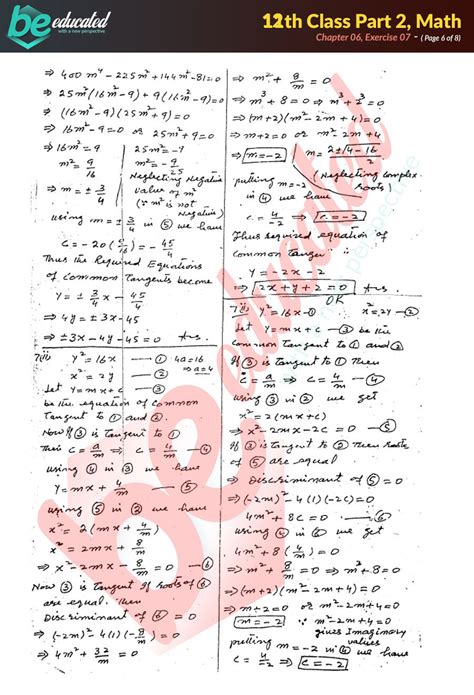 be educated
with a new perspective
12th Class Part 2, Math
Chapter 06, Exercise 07 - ( Page 6 of 8)
⇒ 400m⁴ - 225m² + 144m² - 81 = 0
⇒ 25m²(16m² - 9) + 9(16m² - 9) = 0
⇒ (16m² - 9)(25m² + 9) = 0
⇒ 16m² - 9 = 0 or 25m² + 9 = 0
⇒ 16m² = 9 25m² = -9
m² = 9/16 m² = -9/25
⇒ m = ± 3/4 Neglecting Negative
value of m²
(∵ m² is not
Negative)
using m = ± 3/4 in ⑤ we have
C = -20(9/16) = -45/4
Thus the Required Equations
of Common tangents become
Y = ± 3/4 x - 45/4
⇒ 4y = ± 3x - 45
⇒ ± 3x - 4y - 45 = 0 Ans.
7(ii) y² = 16x —① 4a = 16
x² = 2y —② ⇒ a = 4
Let Y = mx + c —③
be the equation of Common
Tangent to ① and ②.
Now If ③ is tangent to ①
Then C = a/m ⇒ C = 4/m —④
using ④ in ③ we have
Y = mx + 4/m —⑤
using ⑤ in ② we have
x² = 2(mx + 4/m)
⇒ x² = 2mx + 8/m
⇒ x² - 2mx - 8/m = 0 —⑥
Now ③ is tangent if roots of ⑥
are equal. Then
Discriminant of ⑥ = 0
⇒ (-2m)² - 4(1)(-8/m) = 0
⇒ 4m² + 32/m = 0
⇒ m² + 8/m = 0
⇒ m³ + 8 = 0 ⇒ m³ + 2³ = 0
⇒ (m+2)(m² - 2m + 4) = 0
⇒ m+2 = 0 or m² - 2m + 4
⇒ m = -2 m = 2 ± √4-16 / 2
(Neglecting Complex
roots)
putting m = -2
in ④ we have
C = 4/-2 ⇒ C = -2
Thus required equation of
Common tangent
Y = -2x - 2
⇒ 2x + y + 2 = 0 Ans.
OR
7(ii) y² = 16x —① x² = 2y —②
Let Y = mx + c —③ be the
Common tangent to ① and ②.
If ③ is tangent to ① Then
C = a/m ⇒ C = 4/m —④
using ③ in ② we get
x² = 2(mx + c)
⇒ x² - 2mx - 2c = 0 —⑤
If ③ is tangent to ② then roots
of ⑤ are equal
⇒ Discriminant of ⑤ = 0
⇒ (-2m)² - 4(1)(-2c) = 0
4m² + 8c = 0 —⑥
using ④ in ⑥ we get
4m² + 8(4/m) = 0
⇒ m² + 8/m = 0 ⇒ m³ + 8 = 0
⇒ (m+2)(m² - 2m + 4) = 0
⇒ m+2 = 0 or m² - 2m + 4 = 0
⇒ m = -2 gives Imaginary
values
putting m = -2 in ④ we have
C = 4/-2 ⇒ C = -2